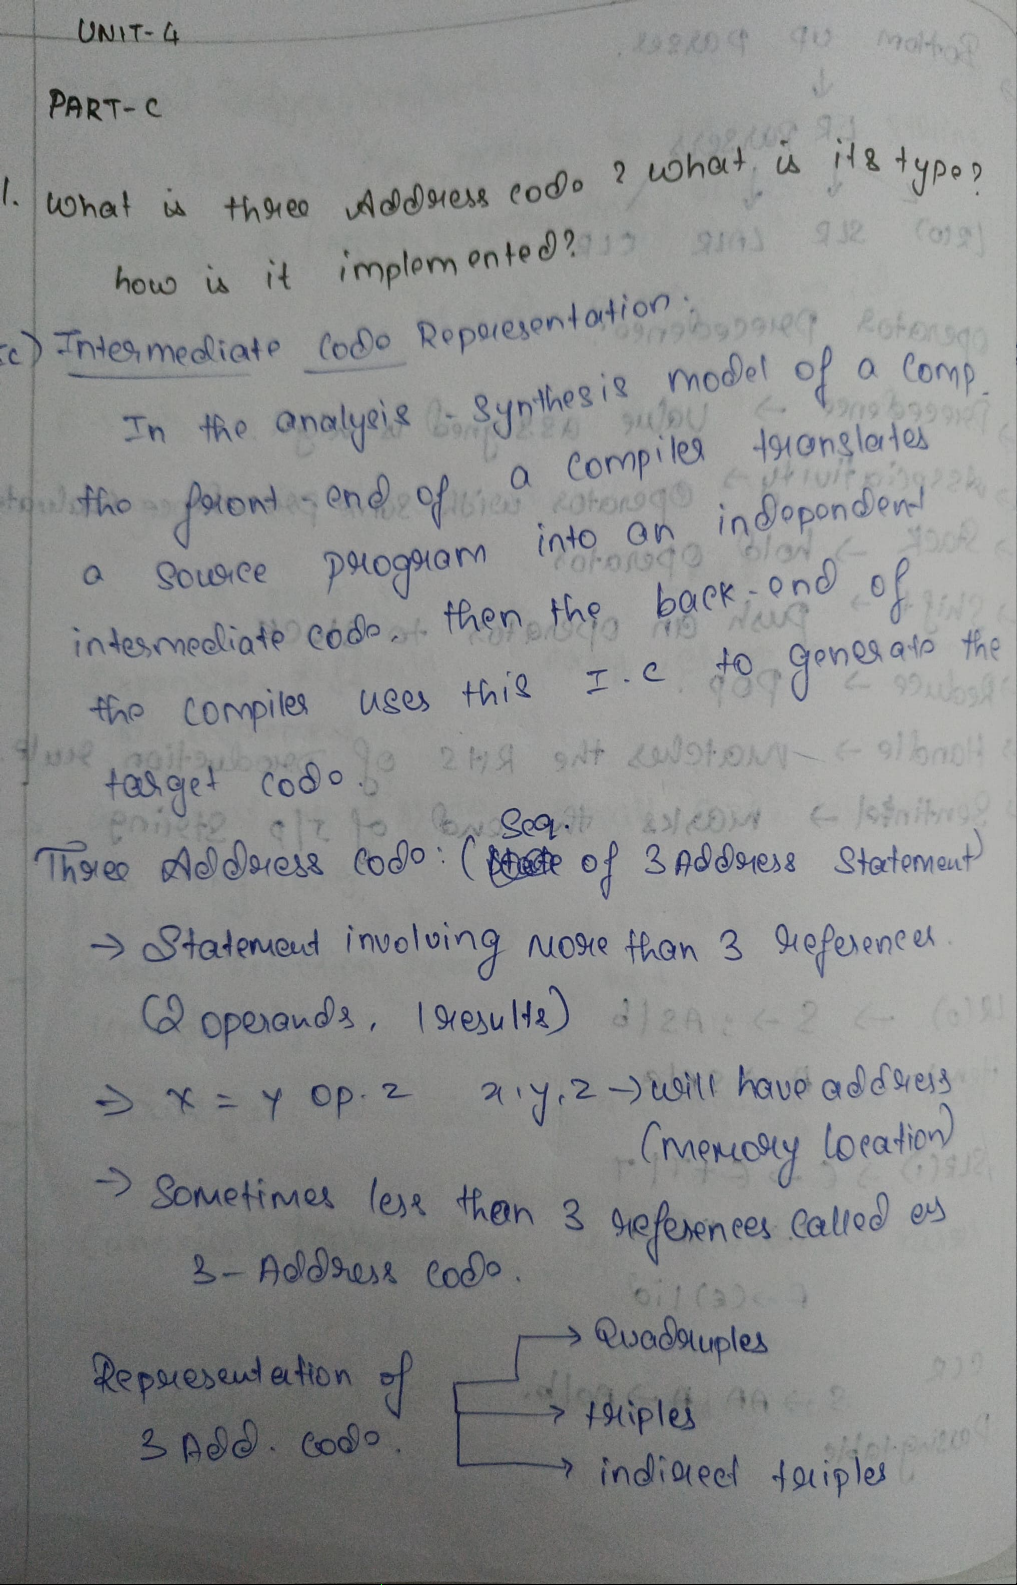 UNIT-4
PART-C
1. What is three Address code ? What is its type?
how is it implemented?
c) Intermediate code Representation:
In the analysis - synthesis model of a comp.
the front-end of a compiler translates
a source program into an independent
intermediate code. then the back-end of
the compiler uses this I.C to generate the
target code.
Seq.
Three Address code: ( of 3 Address Statement)
→ Statement involving more than 3 references.
(2 operands, 1 results)
⇒ x = y op. z x,y,z → will have address
(memory location)
→ Sometimes less than 3 references called as
3-Address code.
Representation of
3 Add. code.
→ Quadruples
→ triples
→ indirect triples